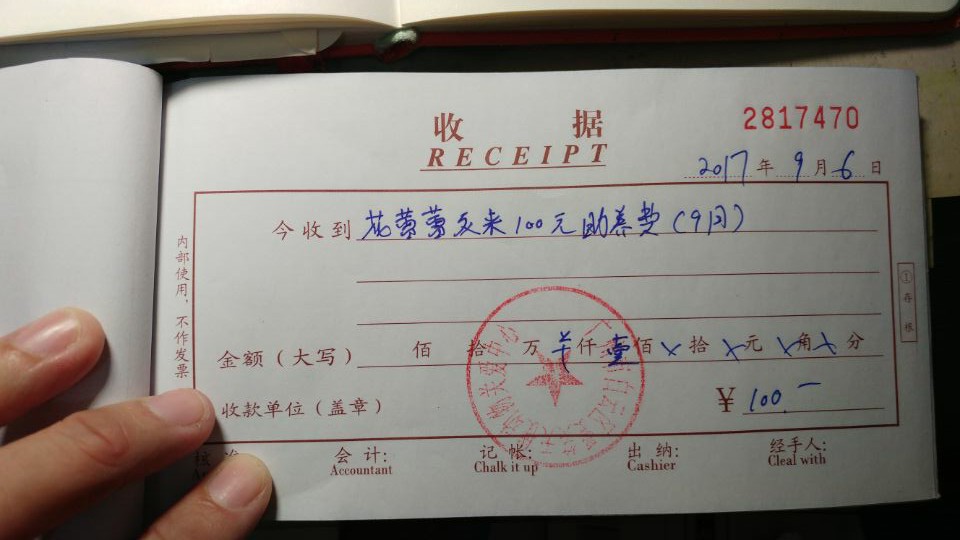 收 据
2817470
RECEIPT
2017年9月6日
今收到 花蕾蕾交来100元助养费(9月)
金额（大写） 佰 拾 万 仟壹佰 拾 元 角 分
收款单位（盖章） ¥ 100.—
会 计: 记 帐: 出 纳: 经手人:
Accountant Chalk it up Cashier Cleal with
内部使用，不作发票
①存根